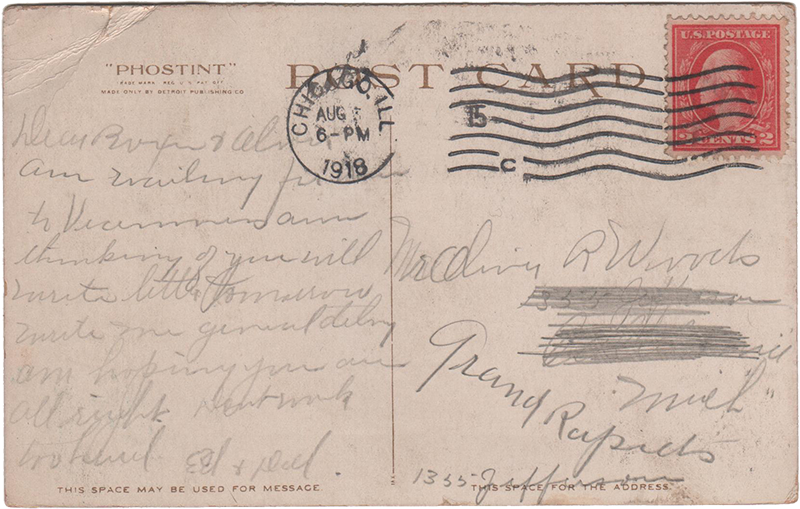 "PHOSTINT"
TRADE MARK REG. U.S. PAT. OFF.
MADE ONLY BY DETROIT PUBLISHING CO.
POST CARD
CHICAGO, ILL
AUG
6-PM
1918
15
C
U.S. POSTAGE
2 CENTS 2
Dear
am waiting
to
thinking of you will
write letter tomorrow
write me general
am hoping you are
all right Dont work
too hard Ed &
Mr R Woods
1355
Grand Mich
Rapids
1355 Jefferson
THIS SPACE MAY BE USED FOR MESSAGE.
THIS SPACE FOR THE ADDRESS.